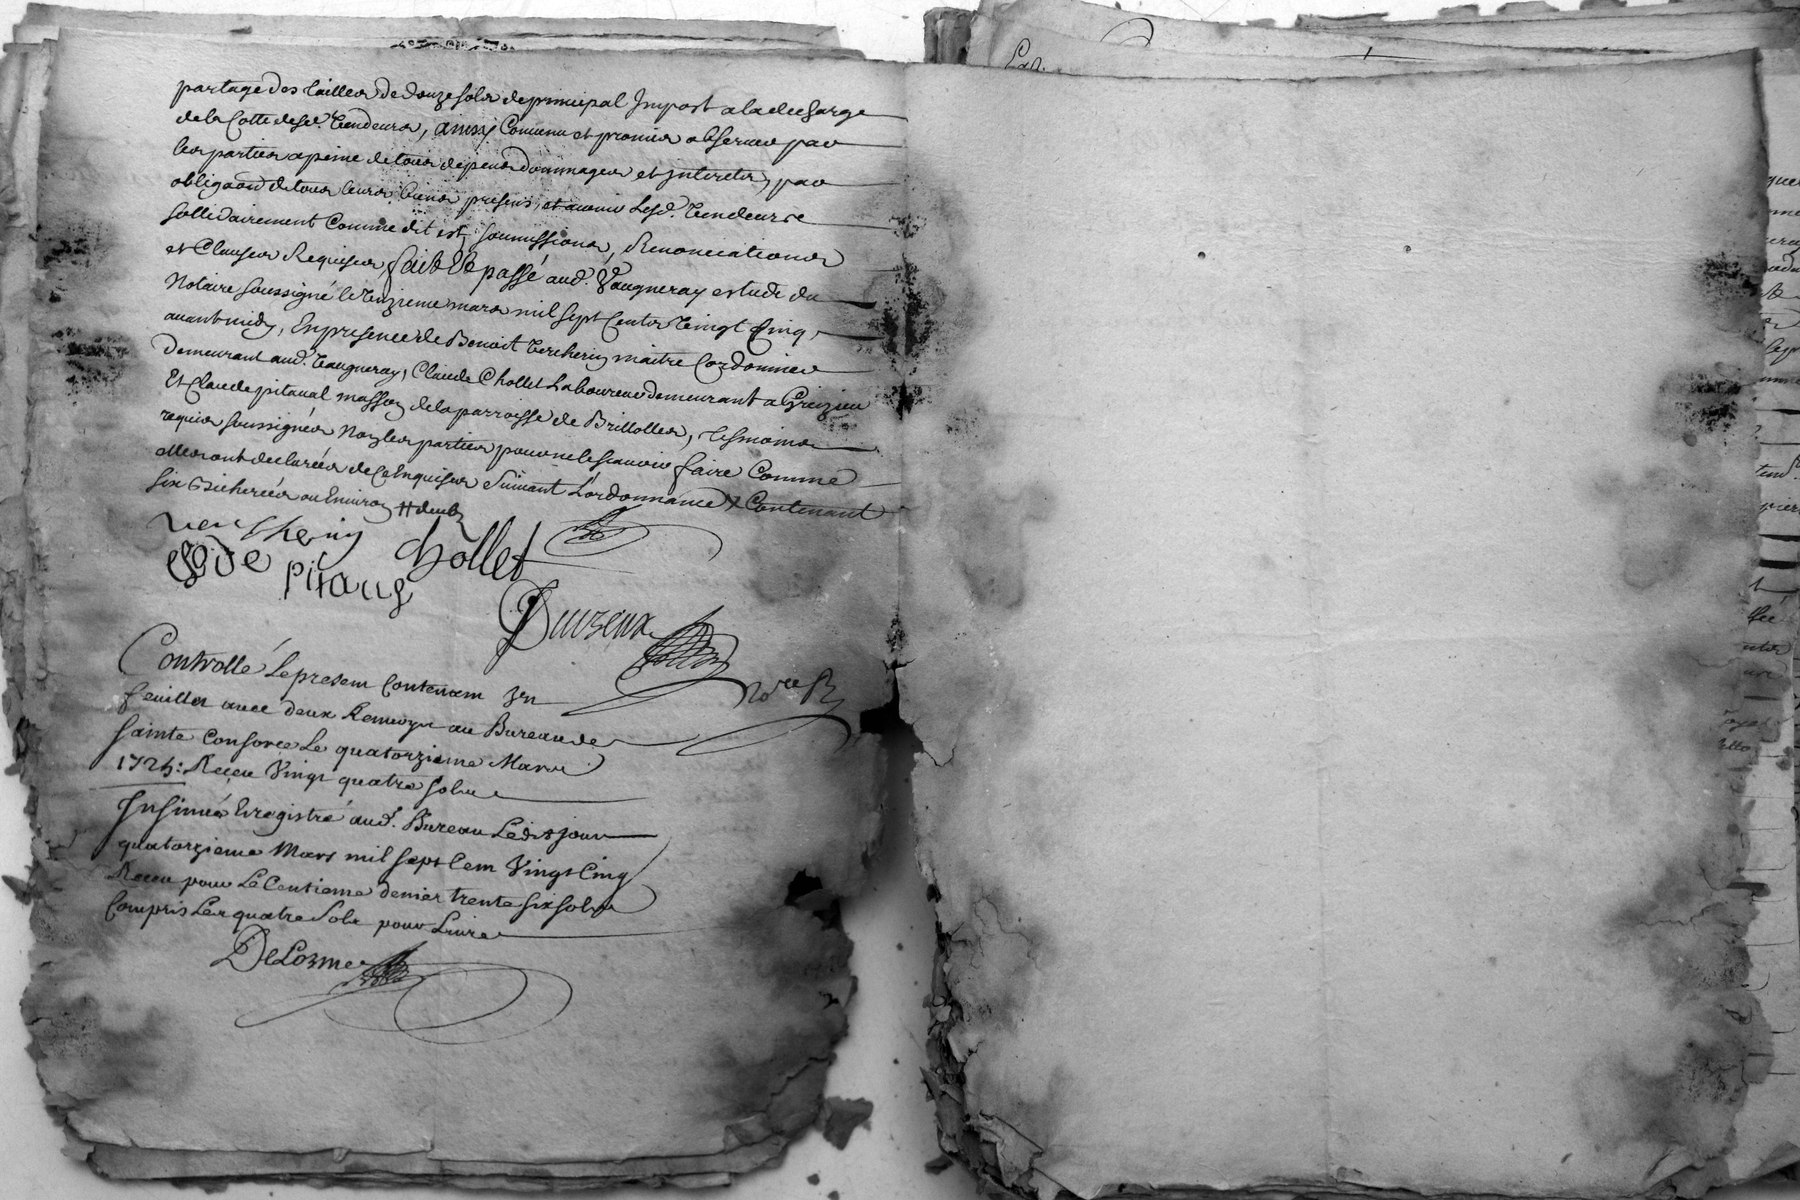 partage des tailles de douze sols de principal Impost a la descharge
de la Cotte desd. Vendeurs, ainsy Convenu et promis observer par
les parties a peine de tous depens dommages et Interets, par
obligaōn de tous leurs biens presens, et avenir Lesd. Vendeurs
sollidairement Comme dit est, soumissions, Renonciations
et Clauses Requises, fait et passé aud. Vaugneray estude du
Notaire soussigné le treizieme mars mil sept Cents Vingt Cinq,
avant midy, En presence de Benoist Vercherin maitre Cordonnier
demeurant aud. Vaugneray, Claude Chollet Laboureur demeurant a Grezieu
Et Claude pitaval masson de la parroisse de Brullolles, tesmoins
requis soussignés Non les parties pour ne le scavoir faire Comme
elles ont declarées de ce Enquises Suivant L'ordonnance Contenant
six Bicherées ou Environ
vercherin chollet
Clode Pitaval
Duizeux
Nore R
Controllé Le present Contenant
feuilles avec deux Renvoys au Bureau de
Sainte Consorce Le quatorzieme Mars
1725: Receu Vingt quatre sols
Insinué Enregistré aud. Bureau Ledit jour
quatorzieme Mars mil sept Cent Vingt Cinq
Receu pour Le Centieme denier trente six sols
Compris Les quatre sols pour Livre
DeLorme